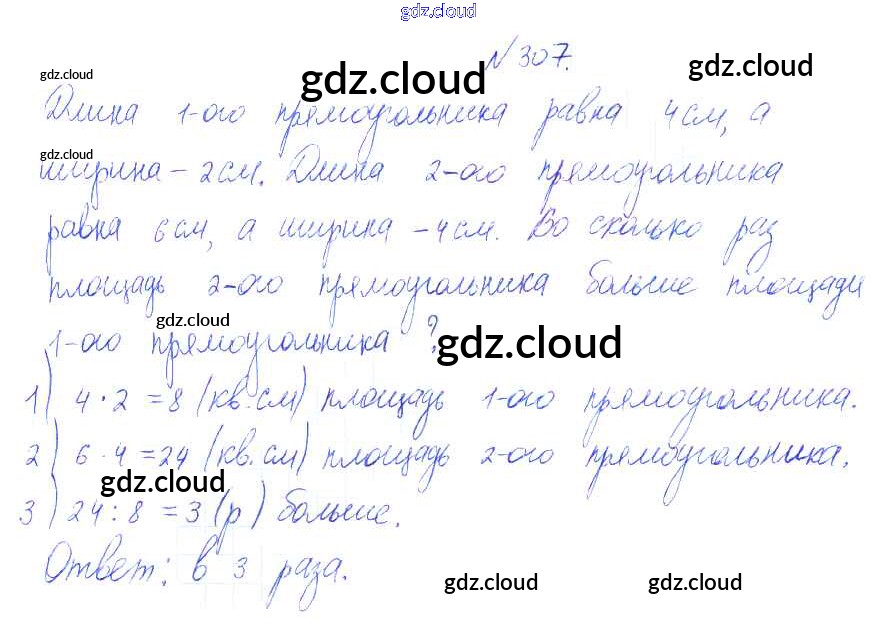 gdz.cloud
№307.
gdz.cloud gdz.cloud gdz.cloud
Длина 1-ого прямоугольника равна 4 см, а
gdz.cloud
ширина - 2 см. Длина 2-ого прямоугольника
равна 6 см, а ширина - 4 см. Во сколько раз
площадь 2-ого прямоугольника больше площади
gdz.cloud
1-ого прямоугольника?
gdz.cloud
1) 4 · 2 = 8 (кв.см) площадь 1-ого прямоугольника.
2) 6 · 4 = 24 (кв.см) площадь 2-ого прямоугольника.
gdz.cloud
3) 24 : 8 = 3 (р) больше.
Ответ: в 3 раза.
gdz.cloud gdz.cloud